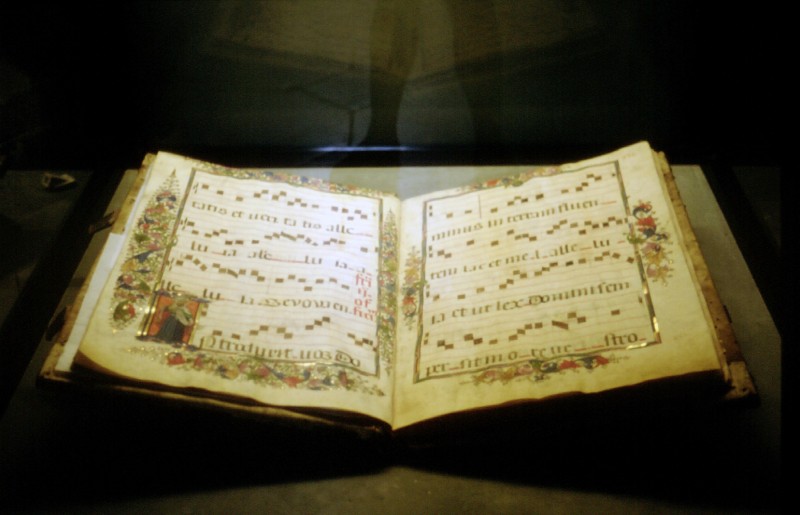 tatis et ueri ta tis alle
lu ia alle lu ia
alle lu ia
ntroduxit uos do
minus in terram fluen
tem lac et mel alle lu
ia et ut lex Domini sem
per sit in o re ue stro